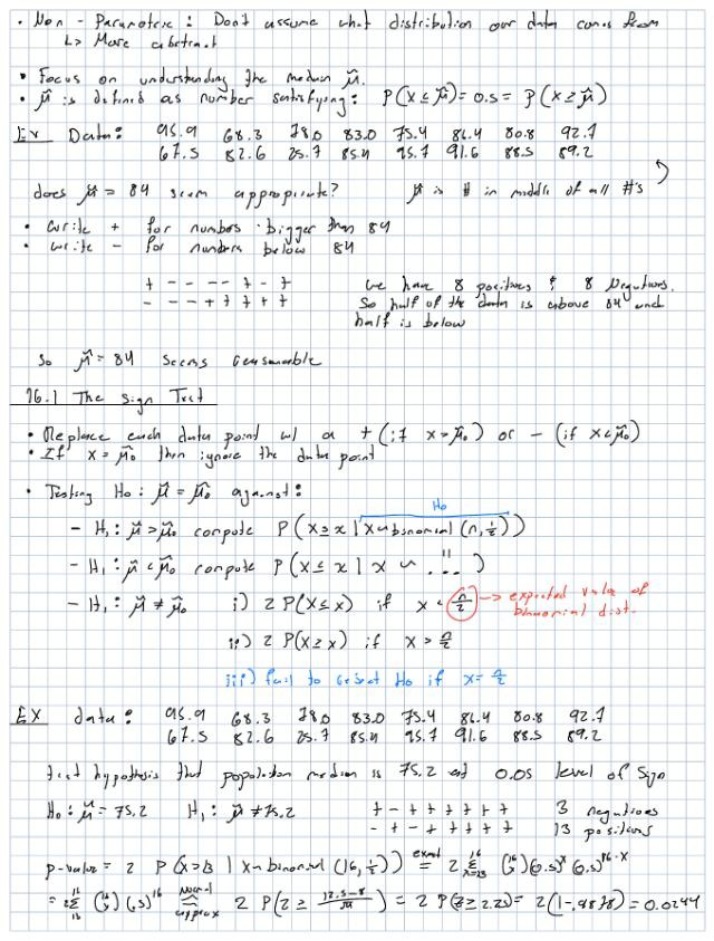 • Non - Parametric : Don't assume what distribution our data comes from
↳ More abstract
• Focus on understanding the median μ̃.
• μ̃ is defined as number satisfying: P(X ≤ μ̃) = 0.5 = P(X ≥ μ̃)
Ex Data: 95.9 68.3 78.0 83.0 75.4 86.4 80.8 92.7
67.5 82.6 25.7 85.4 95.7 91.6 88.5 89.2
does μ̃ = 84 seem appropriate? μ̃ is # in middle of all #'s
• write + for numbers bigger than 84
• write - for numbers below 84
+ - - - - + - +
- - - + + + + +
we have 8 positives & 8 Negatives.
So half of the data is above 84 and
half is below
So μ̃ = 84 seems reasonable
16.1 The Sign Test
• Replace each data point w/ a + (if x > μ̃₀) or - (if x < μ̃₀)
• If x = μ̃₀ then ignore the data point
• Testing H₀ : μ̃ = μ̃₀ against :
H₀
- H₁ : μ̃ > μ̃₀ compute P(X ≥ x | X ~ binomial (n, ½))
- H₁ : μ̃ < μ̃₀ compute P(X ≤ x | X ~ ..".. )
- H₁ : μ̃ ≠ μ̃₀ i) 2 P(X ≤ x) if x < n/2 → expected value of
binomial dist.
ii) 2 P(X ≥ x) if x > n/2
iii) fail to reject H₀ if x = n/2
EX data : 95.9 68.3 78.0 83.0 75.4 86.4 80.8 92.7
67.5 82.6 25.7 85.4 95.7 91.6 88.5 89.2
test hypothesis that population median is 75.2 at 0.05 level of sign
H₀ : μ̃ = 75.2 H₁ : μ̃ ≠ 75.2 + - + + + + + + 3 negatives
- + - + + + + + 13 positives
p-value = 2 P(X ≥ 13 | X ~ binomial (16, ½)) exact = 2 Σ (16 x) (0.5)^x (0.5)^16-x
= 2 Σ (16 x) (.5)^16 Normal ≈ approx 2 P(Z ≥ (12.5-8)/√4) = 2 P(Z ≥ 2.25) = 2(1-.9878) = 0.0244